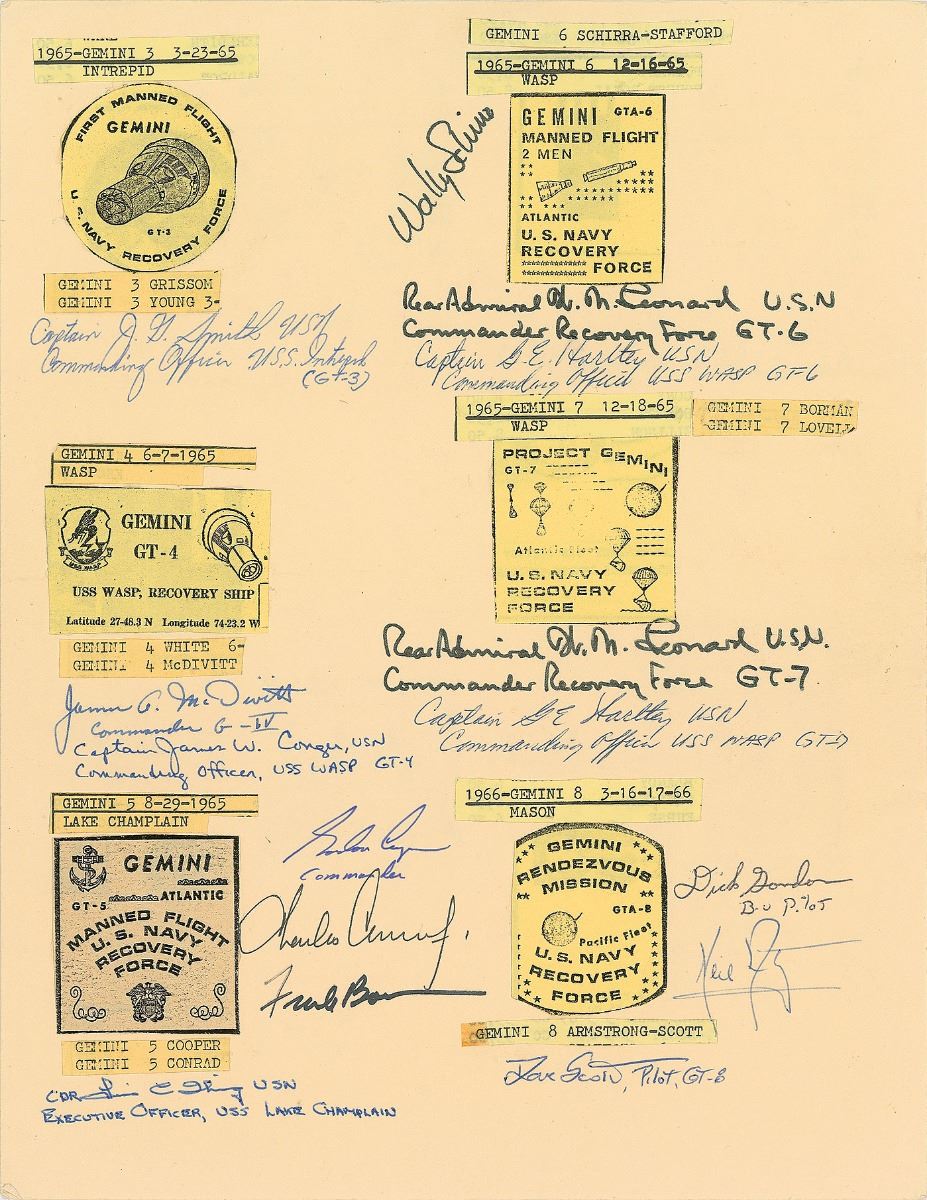 1965-GEMINI 3 3-23-65
INTREPID
FIRST MANNED FLIGHT
GEMINI
GT-3
U.S. NAVY RECOVERY FORCE
GEMINI 3 GRISSOM
GEMINI 3 YOUNG 3-
Captain J. G. Smith USN
Commanding Officer U.S.S. Intrepid
(GT-3)
GEMINI 4 6-7-1965
WASP
USS WASP
GEMINI
GT-4
USS WASP, RECOVERY SHIP
Latitude 27-48.3 N Longitude 74-23.2 W
GEMINI 4 WHITE 6-
GEMINI 4 McDIVITT
James A. McDivitt
Commander G-IV
Captain James W. Conger, USN
Commanding Officer, USS WASP GT-4
GEMINI 5 8-29-1965
LAKE CHAMPLAIN
GEMINI
GT-5 ATLANTIC
MANNED FLIGHT
U.S. NAVY
RECOVERY
FORCE
GEMINI 5 COOPER
GEMINI 5 CONRAD
Gordon Cooper
Commander
Charles Conrad Jr.
Frank Borman
CDR USN
EXECUTIVE OFFICER, USS LAKE CHAMPLAIN
GEMINI 6 SCHIRRA-STAFFORD
1965-GEMINI 6 12-16-65
WASP
Wally Schirra
GEMINI GTA-6
MANNED FLIGHT
2 MEN
ATLANTIC
U.S. NAVY
RECOVERY
FORCE
Rear Admiral W. M. Leonard U.S.N
Commander Recovery Force GT-6
Captain G.E. Hartley USN
Commanding Officer USS WASP GT-6
1965-GEMINI 7 12-18-65
WASP
GEMINI 7 BORMAN
GEMINI 7 LOVELL
PROJECT GEMINI
GT-7
Atlantic Fleet
U.S. NAVY
RECOVERY
FORCE
Rear Admiral W. M. Leonard U.S.N.
Commander Recovery Force GT-7.
Captain G E Hartley USN
Commanding Officer USS WASP GT-7
1966-GEMINI 8 3-16-17-66
MASON
GEMINI
RENDEZVOUS
MISSION
GTA-8
Pacific Fleet
U.S. NAVY
RECOVERY
FORCE
Dick Gordon
B-U Pilot
Neil Armstrong
GEMINI 8 ARMSTRONG-SCOTT
Dave Scott, Pilot, GT-8